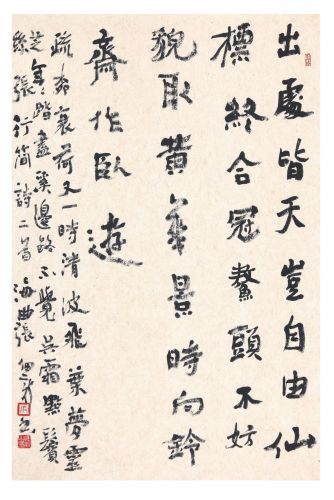 出處皆天豈自由仙
標終合冠鰲頭不妨
貌取黃華景時向鈴
齋作臥遊
疏葦衰荷又一時清波飛葉夢靈
芝年々踏盡溪邊路不覺吳霜點鬢
絲張行簡詩二首海曲張